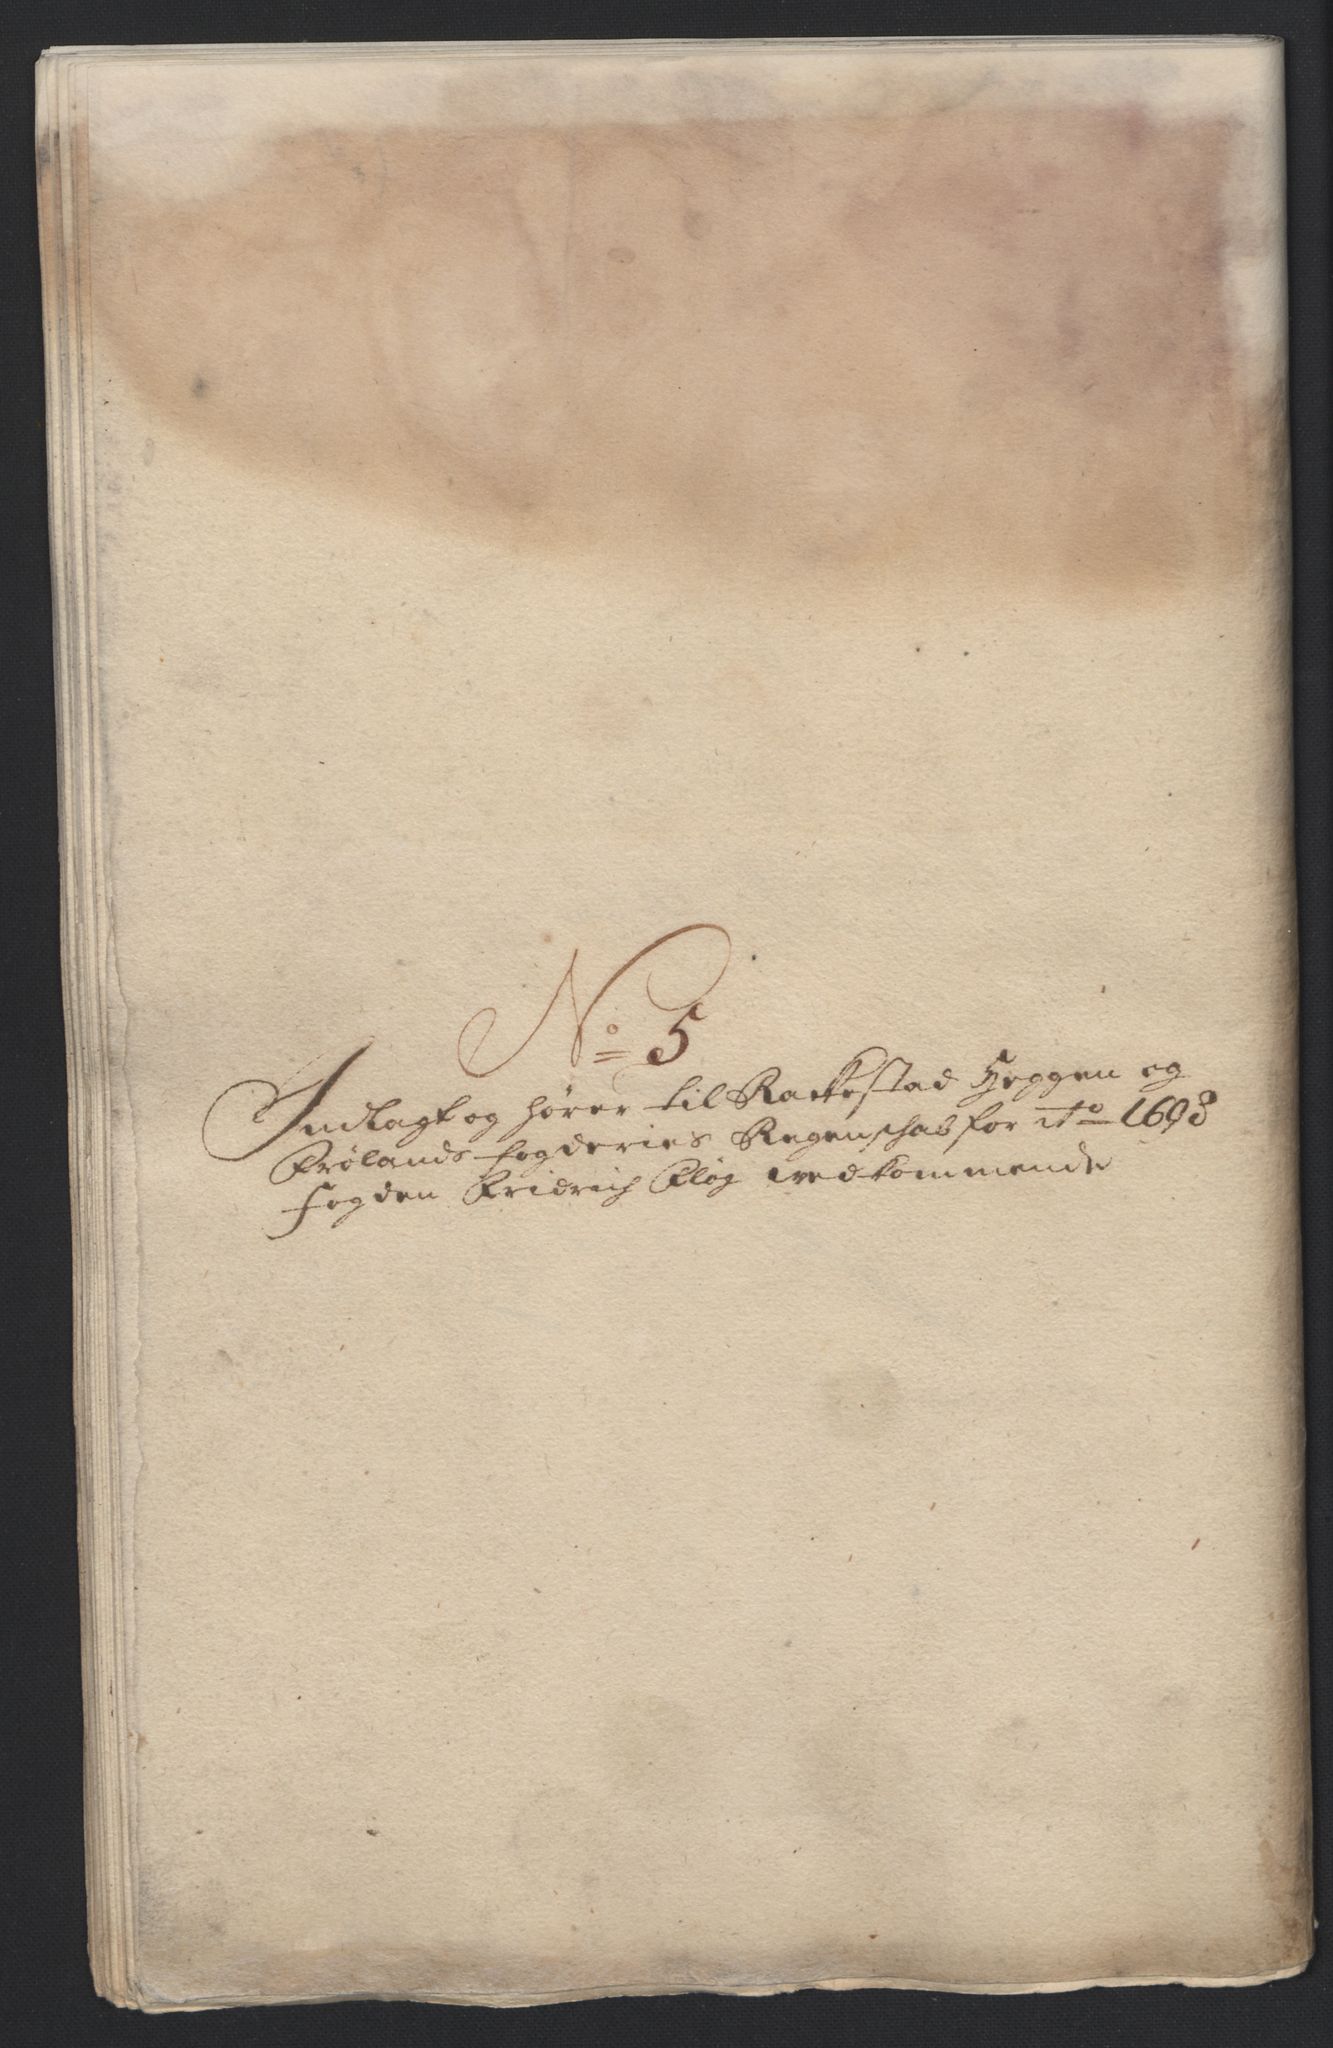 No 5
Indlagt og hører til Rackestad Heggen og
Frølands fogderies Regenschab for ao 1698
Fogden Fridrich Fløg vedkommende